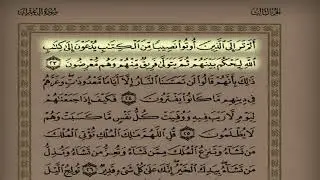 الجزء الثالث سورة آل عمران
أَلَمْ تَرَ إِلَى ٱلَّذِينَ أُوتُوا۟ نَصِيبًا مِّنَ ٱلْكِتَٰبِ يُدْعَوْنَ إِلَىٰ كِتَٰبِ
ٱللَّهِ لِيَحْكُمَ بَيْنَهُمْ ثُمَّ يَتَوَلَّىٰ فَرِيقٌ مِّنْهُمْ وَهُم مُّعْرِضُونَ ٢٣
ذَٰلِكَ بِأَنَّهُمْ قَالُوا۟ لَن تَمَسَّنَا ٱلنَّارُ إِلَّآ أَيَّامًا مَّعْدُودَٰتٍ وَغَرَّهُمْ
فِى دِينِهِم مَّا كَانُوا۟ يَفْتَرُونَ ٢٤ فَكَيْفَ إِذَا جَمَعْنَٰهُمْ
لِيَوْمٍ لَّا رَيْبَ فِيهِ وَوُفِّيَتْ كُلُّ نَفْسٍ مَّا كَسَبَتْ وَهُمْ
لَا يُظْلَمُونَ ٢٥ قُلِ ٱللَّهُمَّ مَٰلِكَ ٱلْمُلْكِ تُؤْتِى ٱلْمُلْكَ
مَن تَشَآءُ وَتَنزِعُ ٱلْمُلْكَ مِمَّن تَشَآءُ وَتُعِزُّ مَن تَشَآءُ وَتُذِلُّ
مَن تَشَآءُ بِيَدِكَ ٱلْخَيْرُ إِنَّكَ عَلَىٰ كُلِّ شَىْءٍ قَدِيرٌ ٢٦ تُولِجُ ٱلَّيْلَ